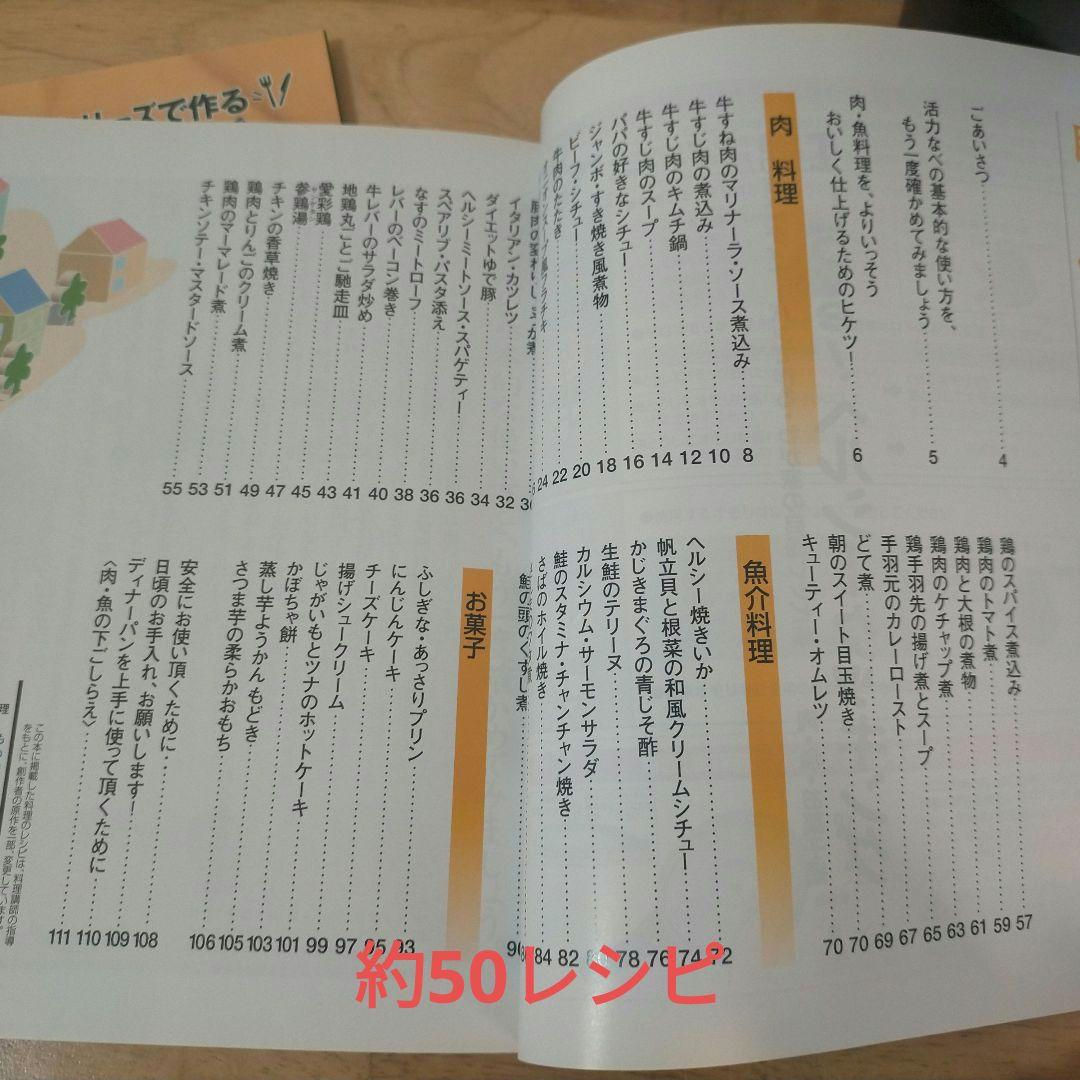 リーズで作る
ごあいさつ……4
活力なべの基本的な使い方を、
もう一度確かめてみましょう……5
肉・魚料理を、よりいっそう
おいしく仕上げるためのヒケツ！……6
肉 料理
牛すね肉のマリナーラ・ソース煮込み……8
牛すじ肉の煮込み……10
牛すじ肉のキムチ鍋……12
牛すじ肉のスープ……14
パパの好きなシチュー……16
ジャンボ・すき焼き風煮物……18
ビーフ・シチュー……20
牛肉のたたき……22
24
30
イタリアン・カツレツ……32
ダイエットゆで豚……34
ヘルシーミートソース・スパゲティー……36
スペアリブ・パスタ添え……36
なすのミートローフ……38
レバーのベーコン巻き……40
牛レバーのサラダ炒め……41
地鶏丸ごとご馳走皿……43
愛彩鶏……45
参鶏湯……47
チキンの香草焼き……49
鶏肉とりんごのクリーム煮……51
鶏肉のマーマレード煮……53
チキンソテー・マスタードソース……55
鶏のスパイス煮込み……57
鶏肉のトマト煮……59
鶏肉と大根の煮物……61
鶏肉のケチャップ煮……63
鶏手羽先の揚げ煮とスープ……65
手羽元のカレーロースト……67
どて煮……69
朝のスイート目玉焼き……70
キューティー・オムレツ……70
魚介料理
ヘルシー焼きいか……72
帆立貝と根菜の和風クリームシチュー……74
かじきまぐろの青じそ酢……76
生鮭のテリーヌ……78
カルシウム・サーモンサラダ……80
鮭のスタミナ・チャンチャン焼き……82
さばのホイル焼き……84
鮭の頭のくずし煮……90
お菓子
ふしぎな・あっさりプリン……93
にんじんケーキ……95
チーズケーキ……97
揚げシュークリーム……99
じゃがいもとツナのホットケーキ……101
かぼちゃ餅……103
蒸し芋ようかんもどき……105
さつま芋の柔らかおもち……106
安全にお使い頂くために……108
日頃のお手入れ、お願いします！……109
ディナーパンを上手に使って頂くために……110
〈肉・魚の下ごしらえ〉……111
この本に掲載した料理のレシピは、料理講師の指導
をもとに、創作者の原作を一部、変更しています。
約50レシピ